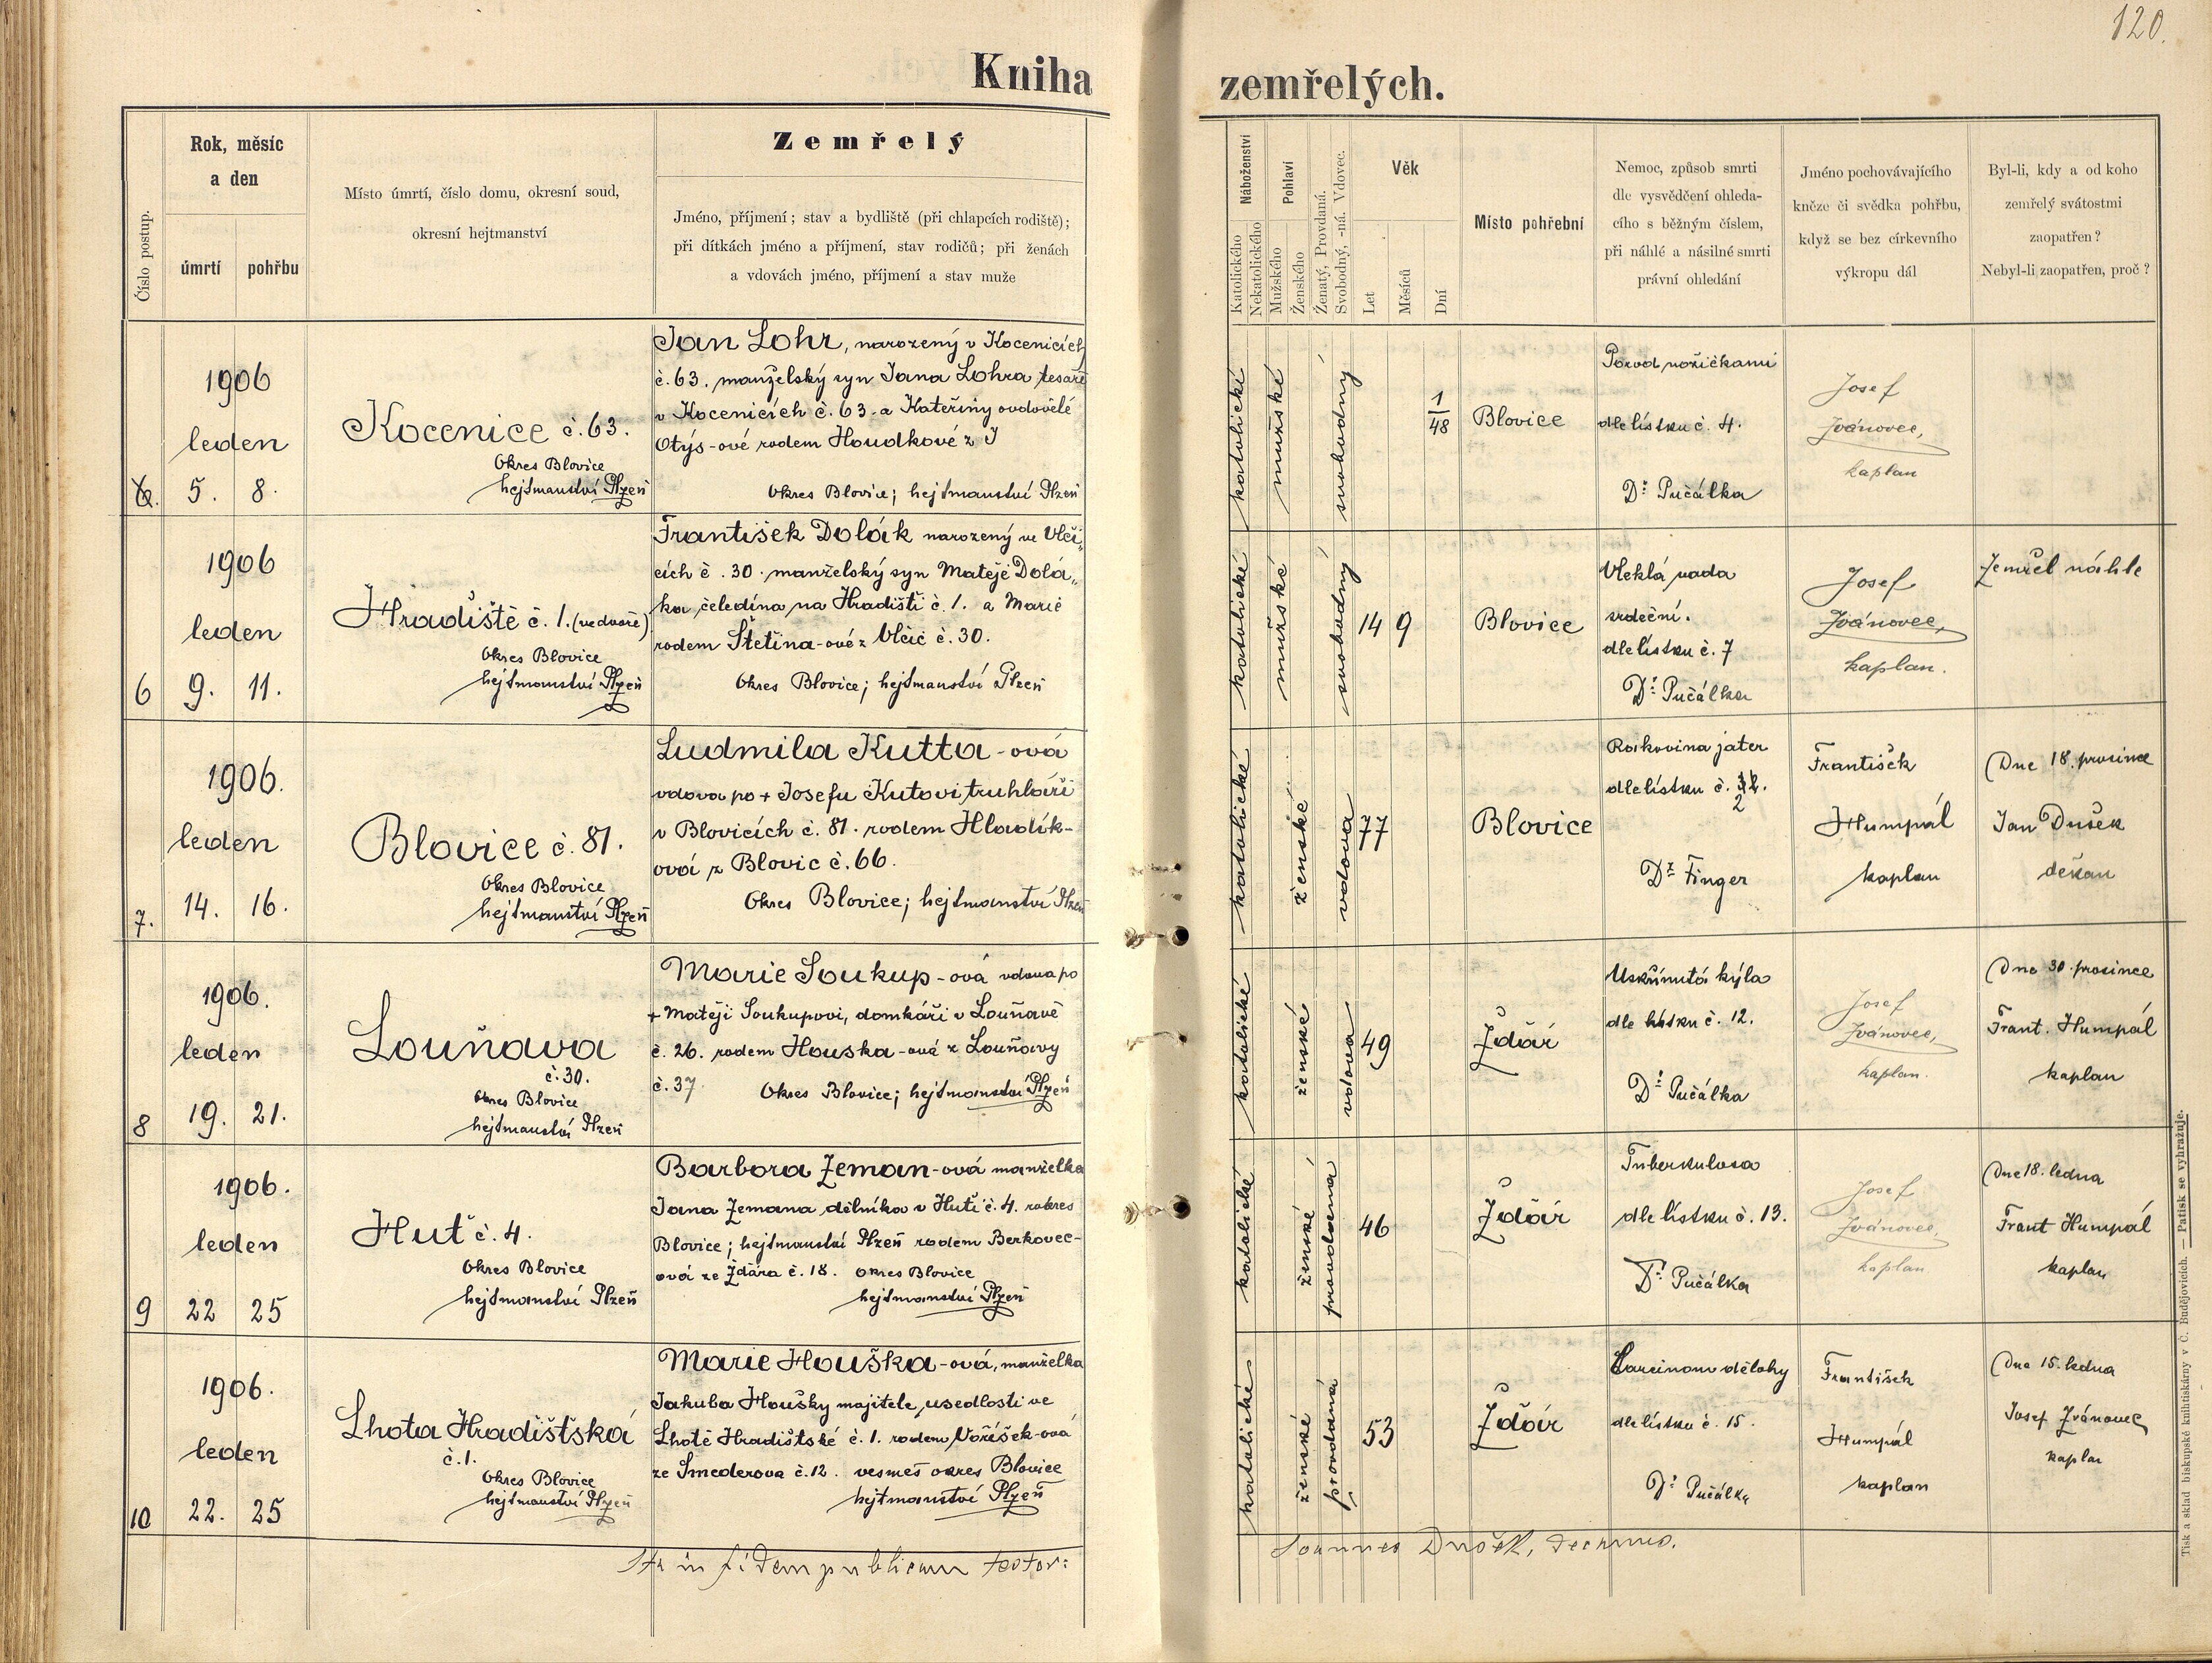 120.
Kniha zemřelých.
Číslo postup.
Rok, měsíc
a den
úmrtí
pohřbu
Místo úmrtí, číslo domu, okresní soud,
okresní hejtmanství
Zemřelý
Jméno, příjmení; stav a bydliště (při chlapcích rodiště);
při dítkách jméno a příjmení, stav rodičů; při ženách
a vdovách jméno, příjmení a stav muže
Náboženství
Katolického
Nekatolického
Pohlaví
Mužského
Ženského
Ženatý, Provdaná.
Svobodný, -ná. Vdovec.
Věk
Let
Měsíců
Dní
Místo pohřební
Nemoc, způsob smrti
dle vysvědčení ohleda-
cího s běžným číslem,
při náhlé a násilné smrti
právní ohledání
Jméno pochovávajícího
kněze či svědka pohřbu,
když se bez církevního
výkropu dál
Byl-li, kdy a od koho
zemřelý svátostmi
zaopatřen?
Nebyl-li zaopatřen, proč?
1906
leden
5. 8.
Kocenice č. 63.
Okres Blovice
hejtmanství Plzeň
Jan Lohr, narozený v Kocenicích
č. 63. manželský syn Jana Lohra tesaře
v Kocenicích č. 63 a Kateřiny ovdovělé
Otýs-ové rodem Houdkové z
Okres Blovice; hejtmanství Plzeň
katolické
mužské
svobodný
1/48
Blovice
Porod nožičkami
dle lístku č. 4.
Dr. Pučálka
Josef
Ivánovec,
kaplan
6
1906
leden
9. 11.
Hradiště č. 1. (ve dvoře)
Okres Blovice
hejtmanství Plzeň
František Dolák narozený ve Vlči„
cích č. 30. manželský syn Matěje Dolá„
ka čeledína na Hradišti č. 1. a Marie
rodem Štetina-ové z Vlčic č. 30.
Okres Blovice; hejtmanství Plzeň
katolické
mužské
svobodný
14 9
Blovice
Vleklá vada
srdeční.
dle lístku č. 7
Dr. Pučálka
Josef
Ivánovec,
kaplan.
Zemřel náhle
7.
1906.
leden
14. 16.
Blovice č. 81.
Okres Blovice
hejtmanství Plzeň
Ludmila Kutta-ová
vdova po + Josefu Kutovi truhláři
v Blovicích č. 81. rodem Hladík-
ová z Blovic č. 66.
Okres Blovice; hejtmanství Plzeň
katolické
ženské
vdova
77
Blovice
Rakovina jater
dle lístku č.
2
Dr. Finger
František
Humpál
kaplan
Dne 18. prosince
Jan Dušek
děkan
8
1906.
leden
19. 21.
Louňava
č. 30.
Okres Blovice
hejtmanství Plzeň
Marie Soukup-ová vdova po
+ Matěji Soukupovi, domkáři v Louňavě
č. 26. rodem Houska-ová z Louňavy
č. 37. Okres Blovice; hejtmanství Plzeň
katolické
ženské
vdova
49
Ždár
Uskřinutá kýla
dle lístku č. 12.
Dr. Pučálka
Josef
Ivánovec,
kaplan.
Dne 30. prosince
Frant. Humpál
kaplan
9
1906.
leden
22 25
Huť č. 4.
Okres Blovice
hejtmanství Plzeň
Barbora Zeman-ová manželka
Jana Zemana dělníka v Huti č. 4. okres
Blovice; hejtmanství Plzeň rodem Berkovec-
ová ze Ždára č. 18. okres Blovice
hejtmanství Plzeň
katolické
ženské
provdaná
46
Ždár
Tuberkulosa
dle lístku č. 13.
Dr. Pučálka
Josef
Ivánovec,
kaplan
Dne 18. ledna
Frant Humpál
kaplan
10
1906.
leden
22. 25
Lhota Hradištská
č. 1.
Okres Blovice
hejtmanství Plzeň
Marie Houška-ová, manželka
Jakuba Houšky majitele usedlosti ve
Lhotě Hradištské č. 1. rodem Voříšek-ová
ze Smederova č. 12. vesměs okres Blovice
hejtmanství Plzeň
katolické
ženské
provdaná
53
Ždár
Carcinom dělohy
dle lístku č. 15.
Dr. Pučálka
František
Humpál
kaplan
Dne 15. ledna
Josef Ivánovec
kaplan
Ita in fidem publicam testor:
Joannes Dušek, decanus.
Tisk a sklad biskupské knihtiskárny v Č. Budějovicích. — Patisk se vyhražuje.